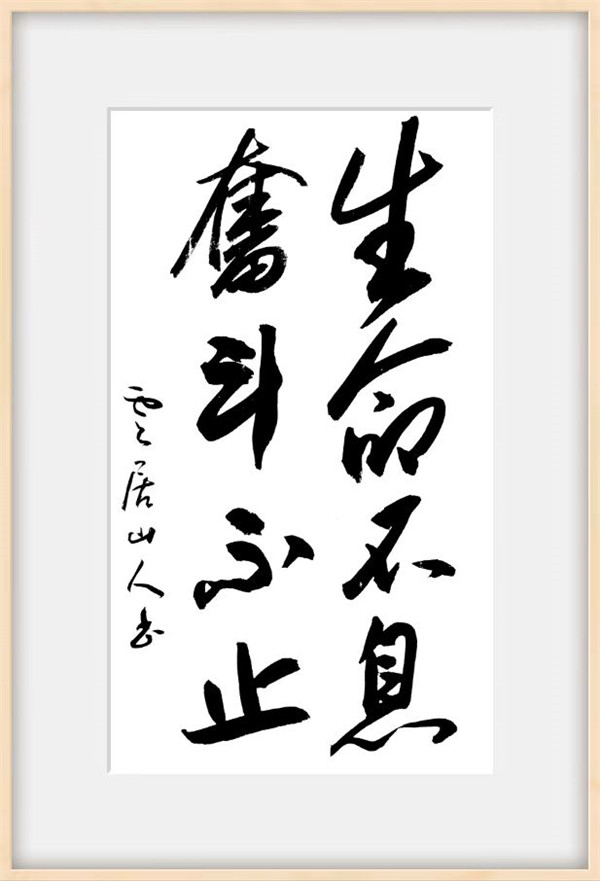 生命不息
奮斗不止
雲居山人书